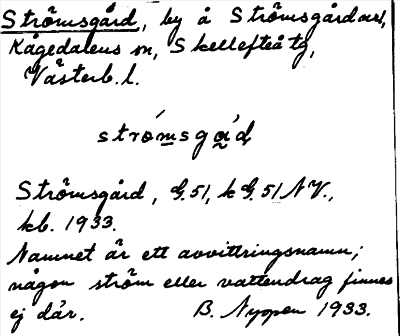 Strömsgård, by å Strömsgård avs,
Kågedalens sn, Skellefteå tg,
Västerb. l.
strömsgård
Strömsgård, G.51, kG.51 NV.,
kb. 1933.
Namnet är ett avvittringsnamn;
någon ström eller vattendrag finnes
ej där. B. Nyppen 1933.